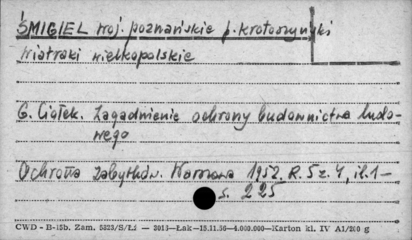 ŚMIGIEL woj. poznańskie p. krotoszyński
Wiatraki wielkopolskie
G. Ciołek. Zagadnienie ochrony budownictwa ludo-
wego
Ochrona Zabytków. Warszawa 1952. R. 5 z. 4, il. 1-
s. 225
CWD - B-15b. Zam. 5823/S/Łi — 3013—Łak—13.11.56—4.000.000—Karton kl. IV A1/200 g